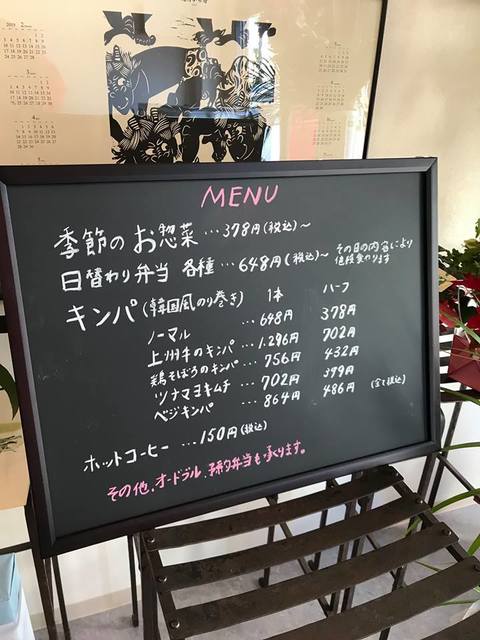 2019
MENU
季節のお惣菜 … 378円(税込)～
日替わり弁当 各種 … 648円(税込)～ その日の内容により
値段変わります
キンパ(韓国風のり巻き) 1本 ハーフ
ノーマル … 648円 378円
上州牛のキンパ … 1.296円 702円
鶏そぼろのキンパ … 756円 432円
ツナマヨキムチ … 702円 399円
ベジキンパ … 864円 486円 (全て税込)
ホットコーヒー … 150円(税込)
その他、オードブル、予約弁当も承ります。